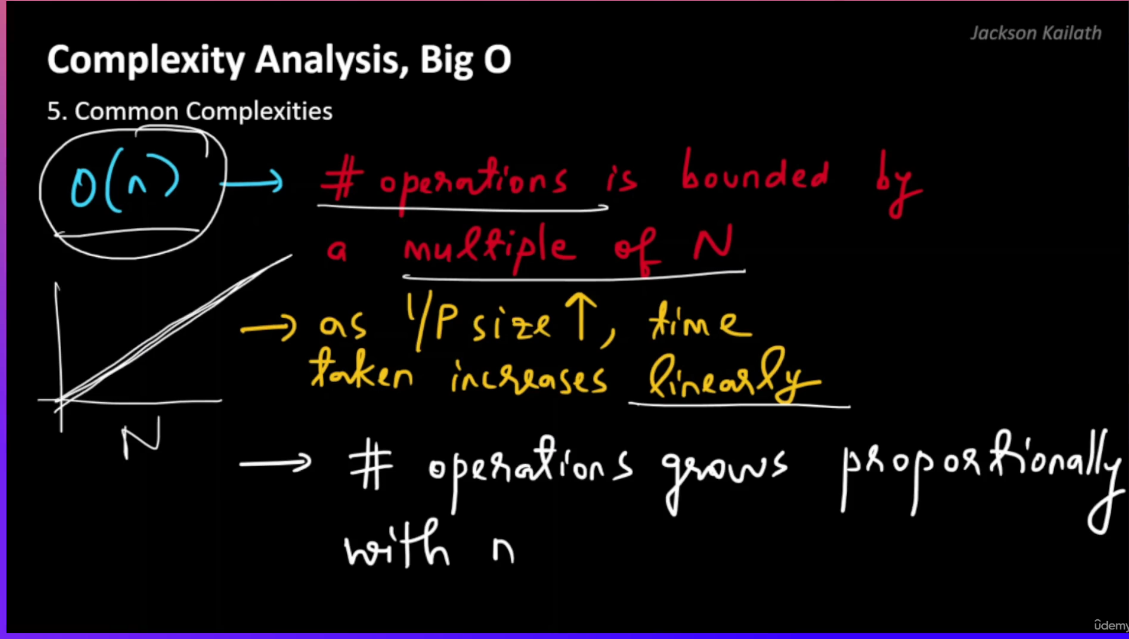 Jackson Kailath
Complexity Analysis, Big O
5. Common Complexities
O(n) → # operations is bounded by
a multiple of N
→ as I/P size ↑, time
taken increases linearly
N
→ # operations grows proportionally
with n
ûdemy